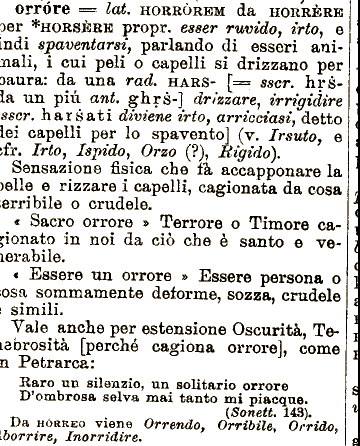 orróre = lat. HORRÒREM da HORRÈRE
per *HORSÈRE propr. esser ruvido, irto, e
indi spaventarsi, parlando di esseri ani-
mali, i cui peli o capelli si drizzano per
paura: da una rad. HARS- [= sscr. hṛṡ-
da un più ant. ghṛṡ-] drizzare, irrigidire
sscr. harṡati diviene irto, arricciasi, detto
dei capelli per lo spavento] (v. Irsuto, e
cfr. Irto, Ispido, Orzo (?), Rigido).
Sensazione fisica che fà accapponare la
pelle e rizzare i capelli, cagionata da cosa
terribile o crudele.
« Sacro orrore » Terrore o Timore ca-
gionato in noi da ciò che è santo e ve-
nerabile.
« Essere un orrore » Essere persona o
cosa sommamente deforme, sozza, crudele
e simili.
Vale anche per estensione Oscurità, Te-
nebrosità [perché cagiona orrore], come
in Petrarca:
Raro un silenzio, un solitario orrore
D'ombrosa selva mai tanto mi piacque.
(Sonett. 143).
Da HÒRREO viene Orrendo, Orribile, Orrido,
Aborrire, Inorridire.